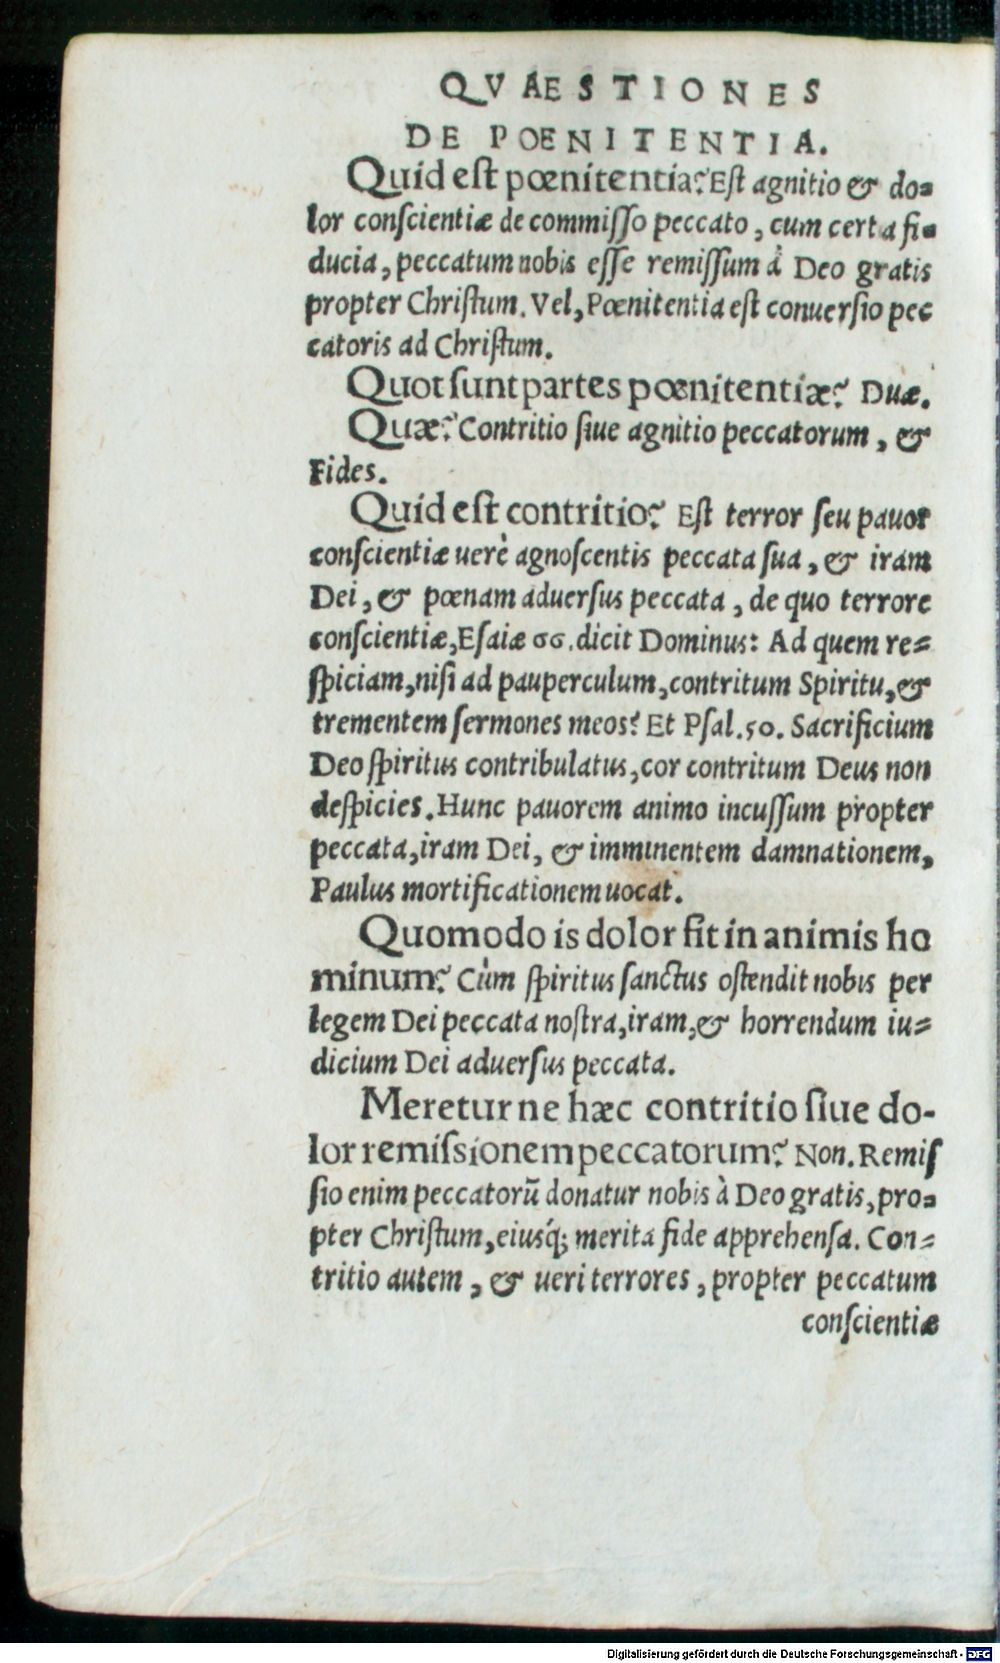 QVAESTIONES
DE POENITENTIA.
Quid eſt pœnitentia? Eſt agnitio & do=
lor conſcientiæ de commiſſo peccato, cum certa fi=
ducia, peccatum nobis eſſe remiſſum à Deo gratis
propter Chriſtum. Vel, Pœnitentia eſt conuerſio pec
catoris ad Chriſtum.
Quot ſunt partes pœnitentiæ? Duæ.
Quæ? Contritio ſiue agnitio peccatorum, &
Fides.
Quid eſt contritio? Eſt terror ſeu pauor
conſcientiæ uerè agnoſcentis peccata ſua, & iram
Dei, & pœnam aduerſus peccata, de quo terrore
conſcientiæ, Eſaiæ 66. dicit Dominus: Ad quem re=
ſpiciam, niſi ad pauperculum, contritum Spiritu, &
trementem ſermones meos? Et Pſal. 50. Sacrificium
Deo ſpiritus contribulatus, cor contritum Deus non
deſpicies. Hunc pauorem animo incuſſum propter
peccata, iram Dei, & imminentem damnationem,
Paulus mortificationem uocat.
Quomodo is dolor fit in animis ho
minum? Cùm ſpiritus ſanctus oſtendit nobis per
legem Dei peccata noſtra, iram, & horrendum iu=
dicium Dei aduerſus peccata.
Mereturne hæc contritio ſiue do-
lor remiſsionem peccatorum? Non. Remiſ
ſio enim peccatorũ donatur nobis à Deo gratis, pro=
pter Chriſtum, eiusq́; merita fide apprehenſa. Con=
tritio autem, & ueri terrores, propter peccatum
conſcientiæ
Digitalisierung gefördert durch die Deutsche Forschungsgemeinschaft - DFG